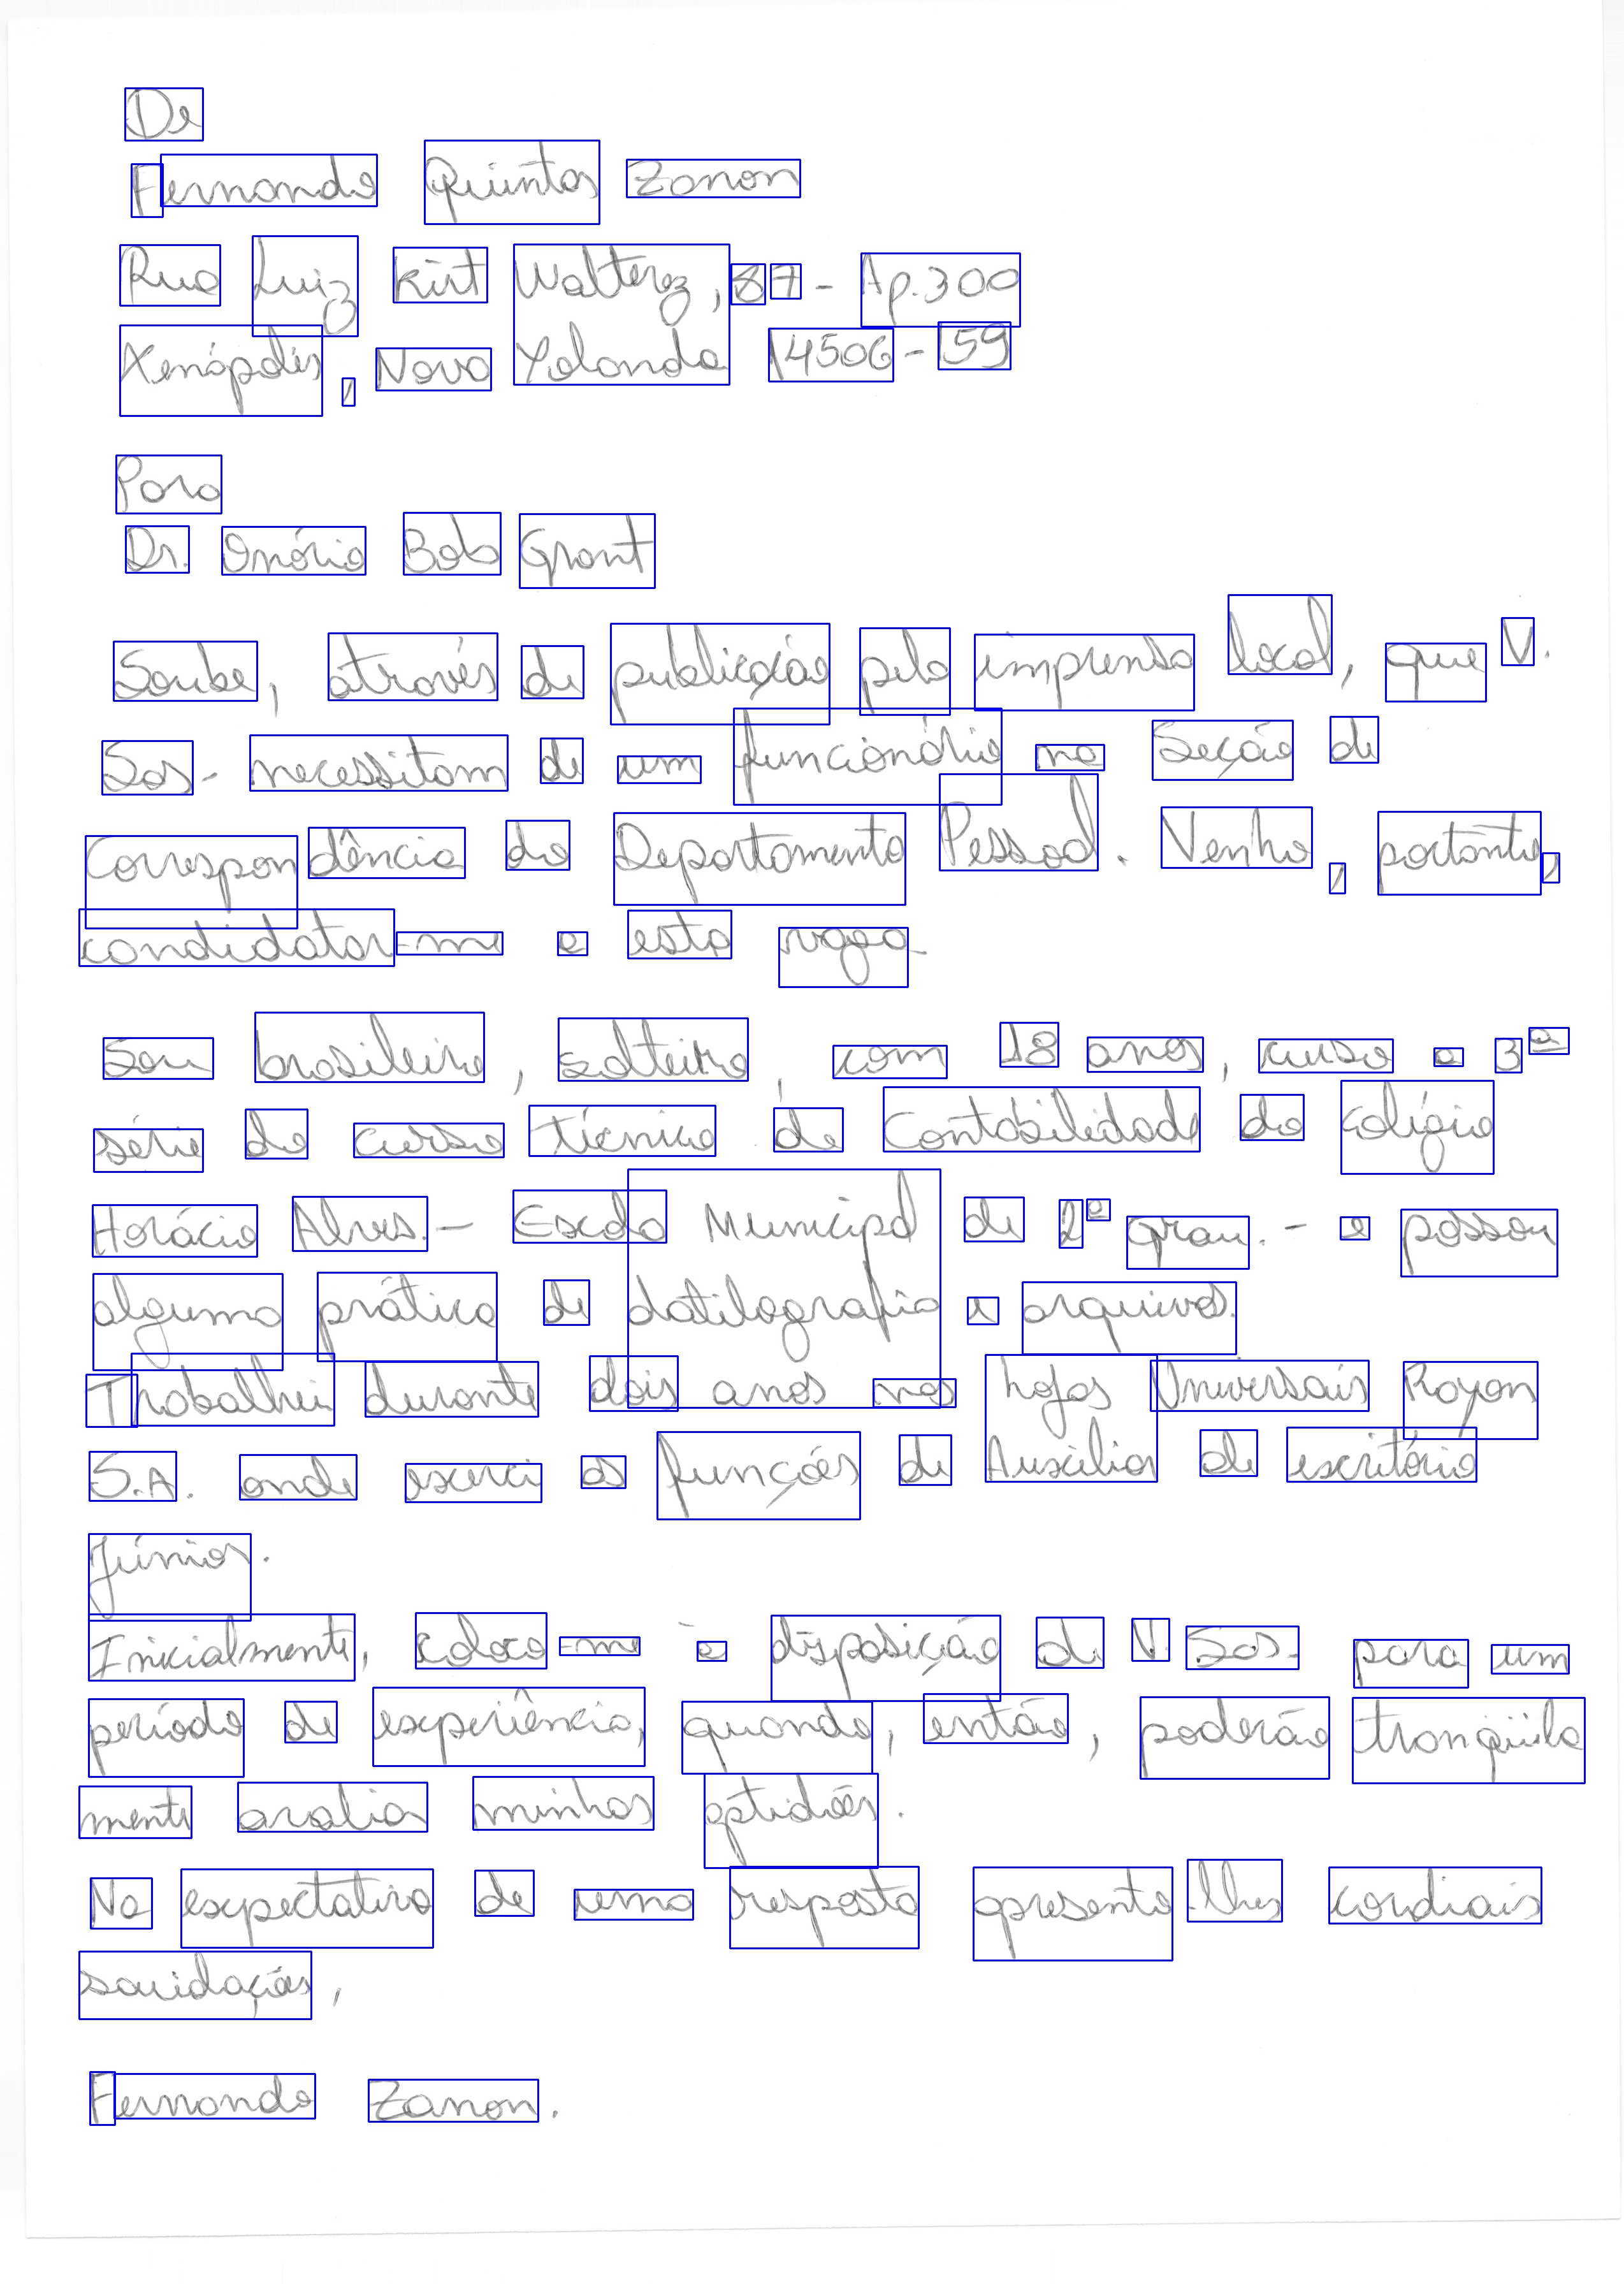 De
Fernando Quintas Zanon
Rua Luiz Kirt Walterez, 87 - Ap. 300
Xenópolis, Nova Yolanda 14506-59
Para
Dr. Onório Bob Grant
Soube, através de publicação pela imprensa local, que V.
Sas. necessitam de um funcionário na Seção de
Correspondência do Departamento Pessoal. Venho, portanto,
candidatar-me a esta vaga.
Sou brasileiro, solteiro, com 18 anos, curso a 3ª
série do curso técnico de Contabilidade do Colégio
Horácio Alves. - Escola Municipal de 2º grau. - e possou
alguma prática de datilografia e arquivos.
Trabalhei durante dois anos nas lojas Universais Rayon
S.A. onde exerci as funções de Auxiliar de escritório
Júnior.
Inicialmente, coloco-me à disposição de V. Sas. para um
período de experiência, quando, então, poderão tranqüila
mente avaliar minhas aptidões.
Na expectativa de uma resposta apresento-lhes cordiais
saudações,
Fernando Zanon.